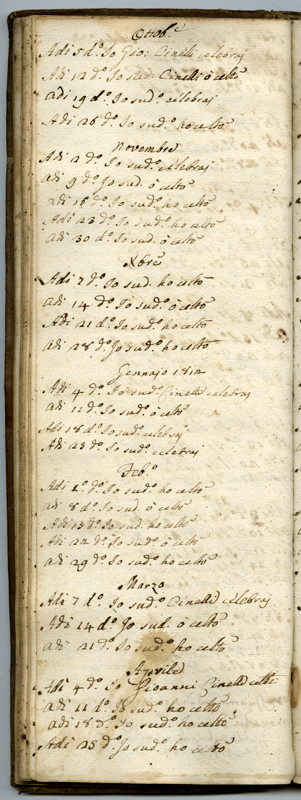 Ottob.e
Adi 5 d.o Io Gio: Cinelli celebrai
Adi 12 d.o Io sud.o Cinelli ò celto
adi 19 d.o Io sud.o celebrai
Adi 26 d.o Io sud.o ho celto
Novembre
Adi 2 d.o Io sud.o celebrai
adi 9 d.o Io sud. ò celto
adi 16 d.o Io sud.o ho celto
Adi 23 d.o Io sud.o ho celto
adi 30 d.o Io sud. ò celto
Xbre
Adi 7 d.o Io sud. ho celto
adi 14 d.o Io sud.o ò celto
Adi 21 d.o Io sud.o ho celto
adi 28 d.o Io sud.o ho celto
Gennajo 1812
Adi 4 d.o Io sud.o Cinelli celebrai
adi 12 d.o Io sud.o ò celto
Adi 18 d.o Io sud.o celebrai
Adi 25 d.o Io sud.o celebrai
Feb.o
Adi 2 d.o Io sud.o ho celto
adi 8 d.o Io sud. ò celto
Adi 15 d.o Io sud. ho celto
Adi 22 d.o Io sud.o ò celto
adi 29 d.o Io sud.o ho celto
Marzo
Adi 7 d.o Io sud.o Cinelli celebrai
Adi 14 d.o Io sud. ò celto
adi 21 d.o Io sud.o ho celto
Aprile
Adi 4 d.o Io Giovanni Cinelli celto
adi 11 d.o Io sud.o ho celto
adi 18 d.o Io sud.o ho celto
Adi 25 d.o Io sud.o ho celto